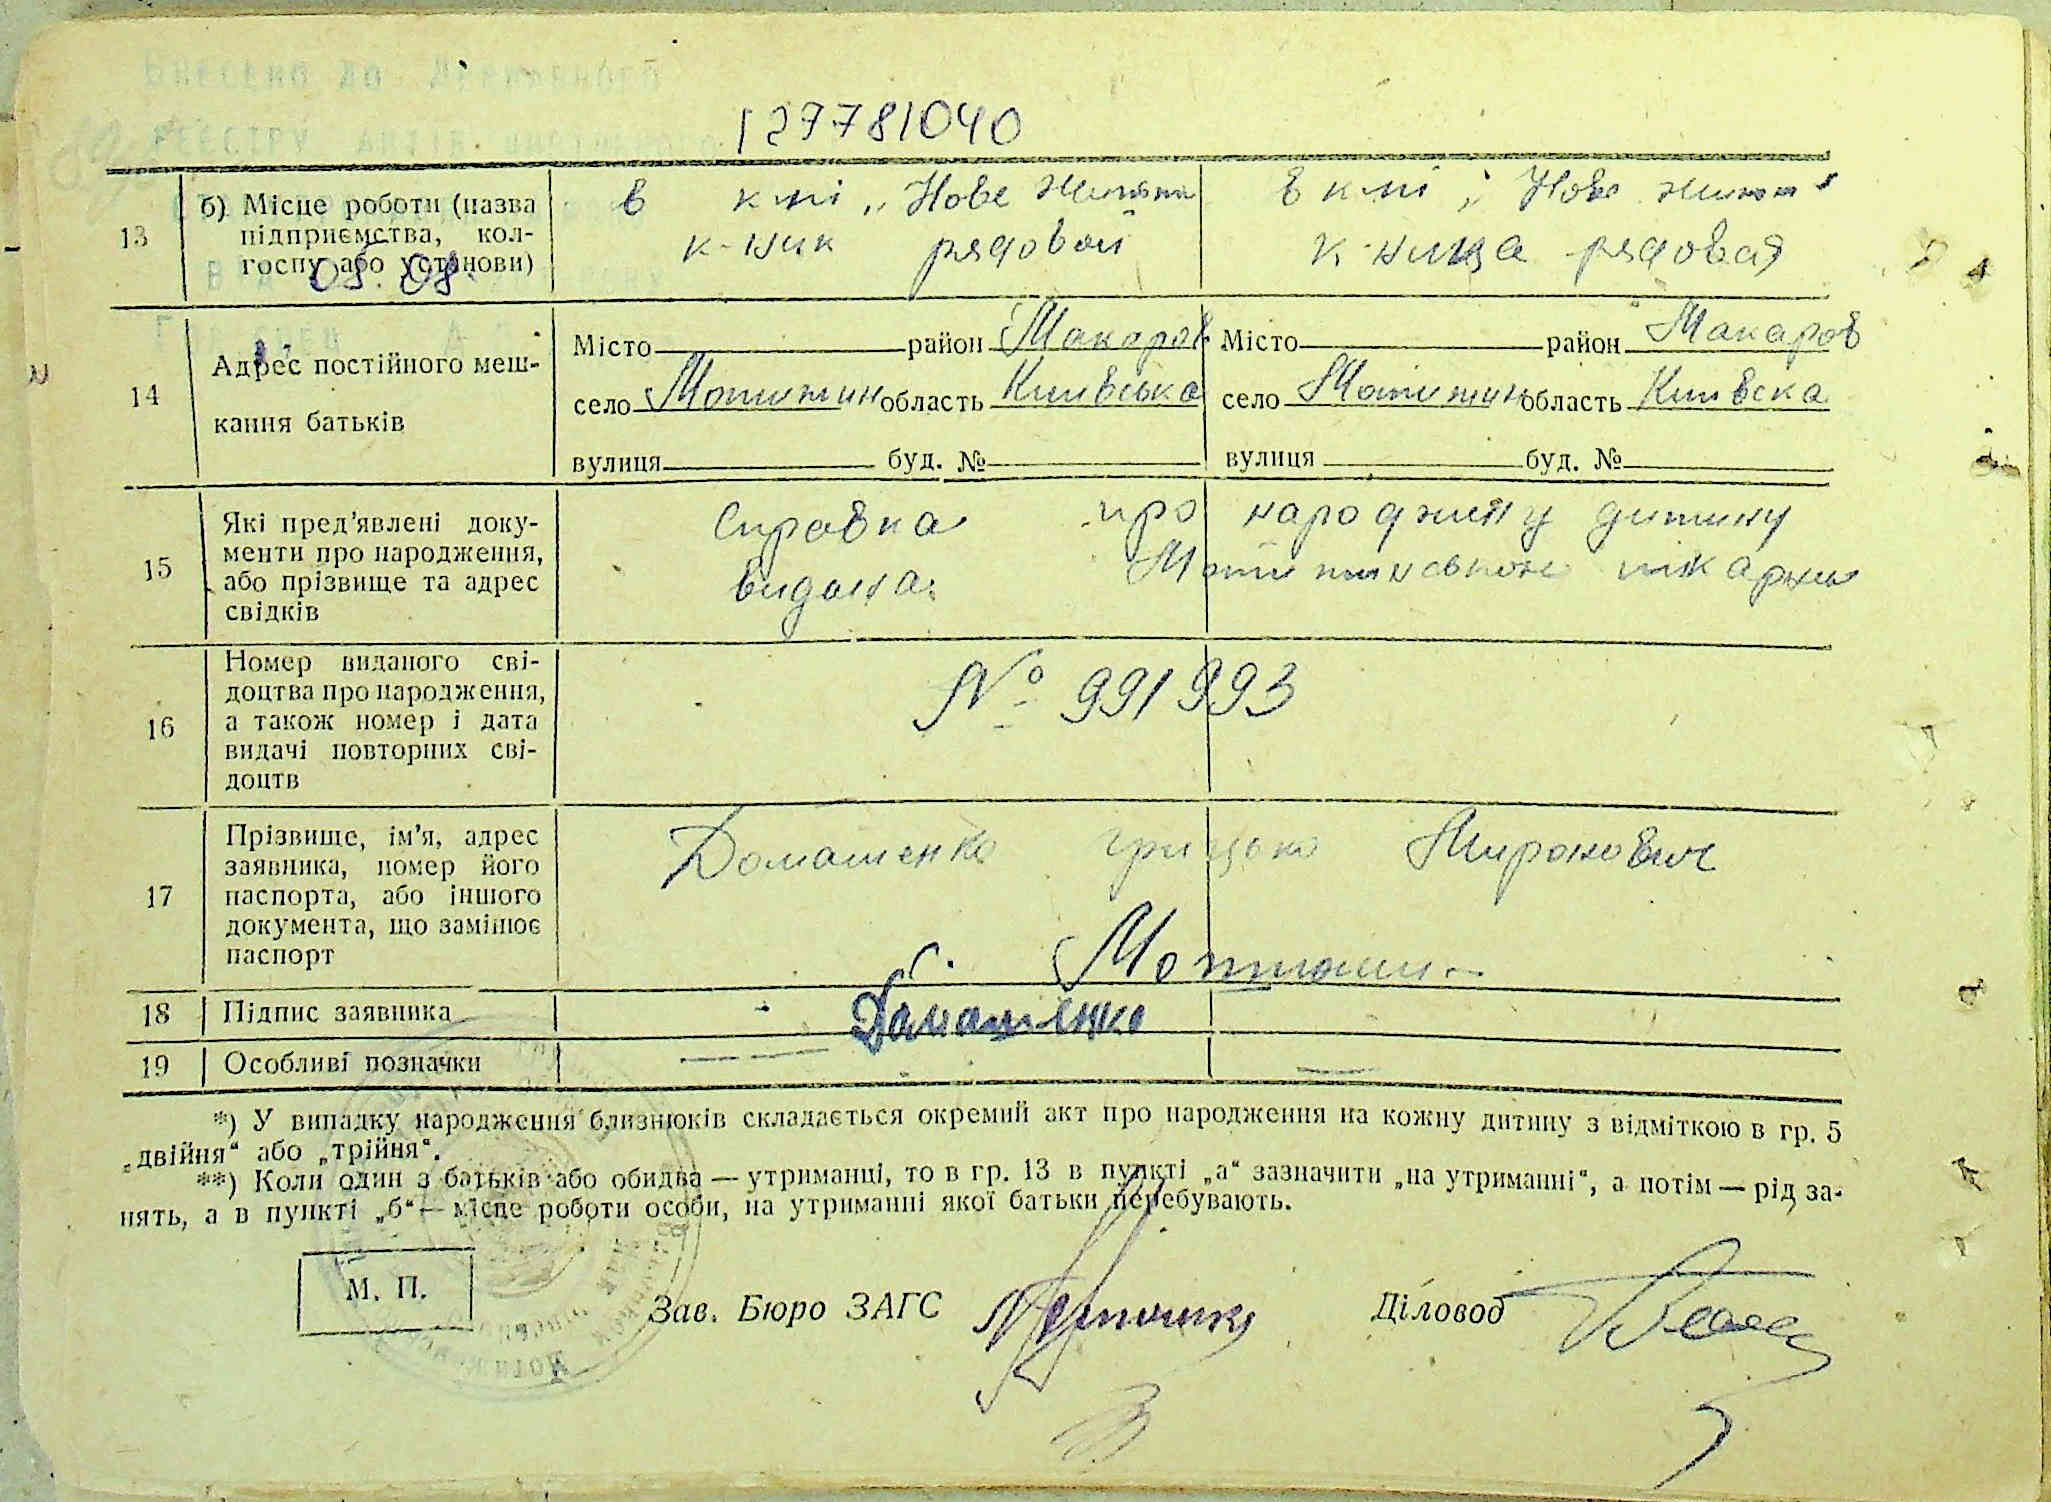 Внесено до Державного
реєстру актів цивільного
127781040
13
б) Місце роботи (назва
підприємства, кол-
госпу або установи)
в к-пі „Нове життя
к-ник рядовой
в к-пі „Нове життя"
к-ница рядовая
08. 08.
14
Адрес постійного меш-
кання батьків
Місто район Макаров
село Мотижин область Київська
вулиця буд. №
Місто район Макаров
село Мотижин область Київска
вулиця буд. №
15
Які пред'явлені доку-
менти про народження,
або прізвище та адрес
свідків
Справка про народжену дитину
видана Мотижинською лікарнею
16
Номер виданого сві-
доцтва про народження,
а також номер і дата
видачі повторних сві-
доцтв
№ 991993
17
Прізвище, ім'я, адрес
заявника, номер його
паспорта, або іншого
документа, що замінює
паспорт
Домашенко Грицько Миронович
с. Мотижин
18
Підпис заявника
Домашенко
19
Особливі позначки
*) У випадку народження близнюків складається окремий акт про народження на кожну дитину з відміткою в гр. 5
„двійня“ або „трійня“.
**) Коли один з батьків або обидва — утриманці, то в гр. 13 в пункті „а“ зазначити „на утриманні“, а потім — рід за-
нять, а в пункті „б“ — місце роботи особи, на утриманні якої батьки перебувають.
М. П.
Зав. Бюро ЗАГС
Діловод